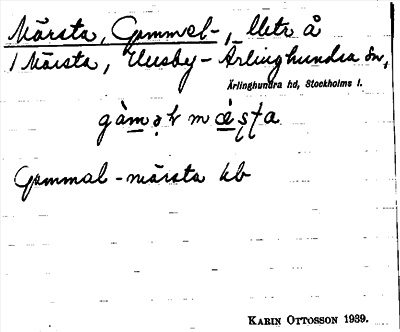 Märsta, Gammal-, lletr å
1 Märsta, Husby-Ärlinghundra sn,
Ärlinghundra hd, Stockholms l.
Gammal-märsta kb
KARIN OTTOSSON 1939.